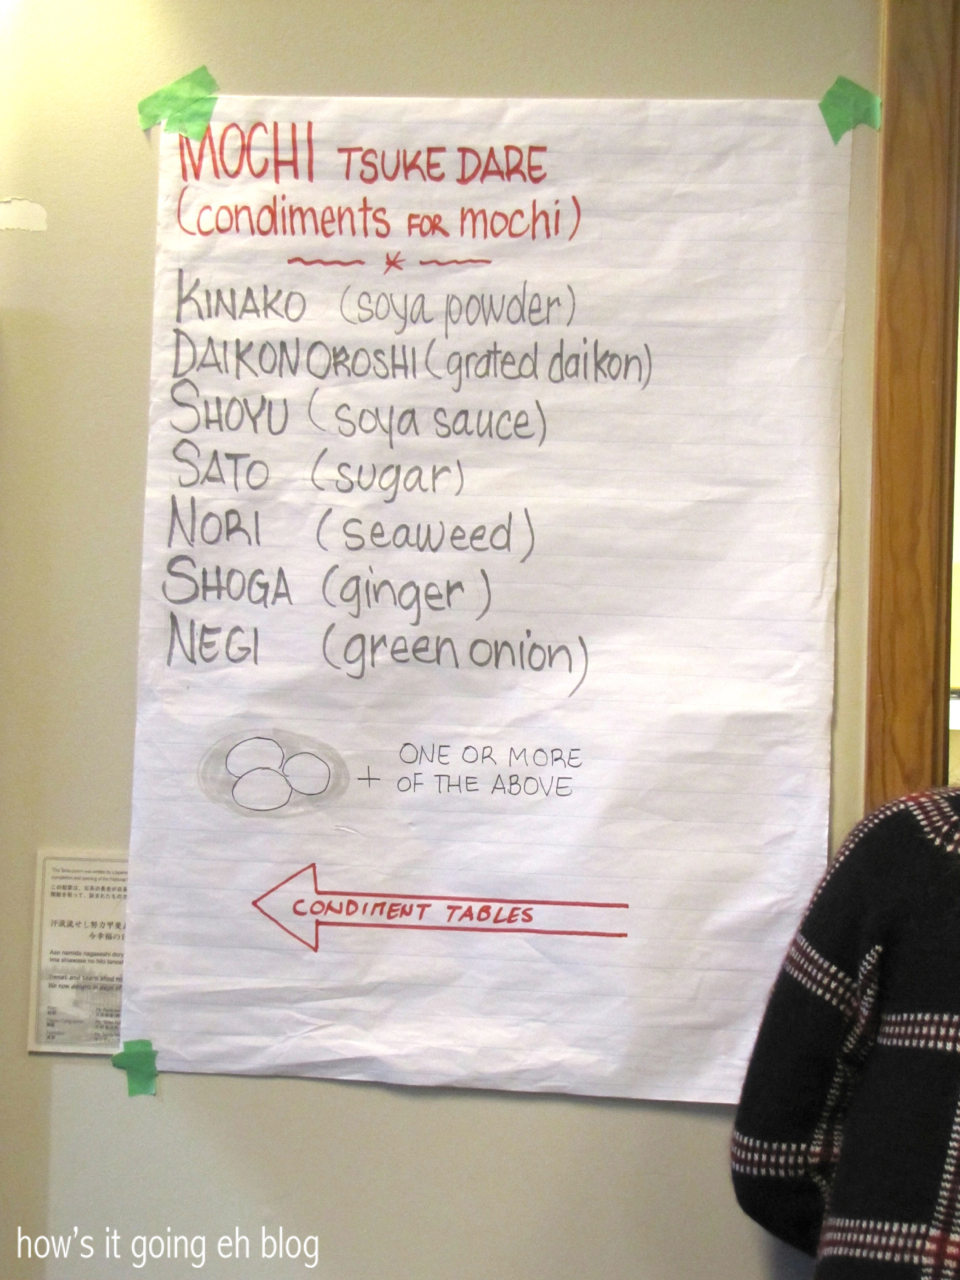 MOCHI TSUKE DARE
(condiments FOR mochi)
KINAKO (soya powder)
DAIKON OROSHI (grated daikon)
SHOYU (soya sauce)
SATO (sugar)
NORI (seaweed)
SHOGA (ginger)
NEGI (green onion)
+ ONE OR MORE
OF THE ABOVE
CONDIMENT TABLES
汗涙流せし努力甲斐
今幸福の
how's it going eh blog